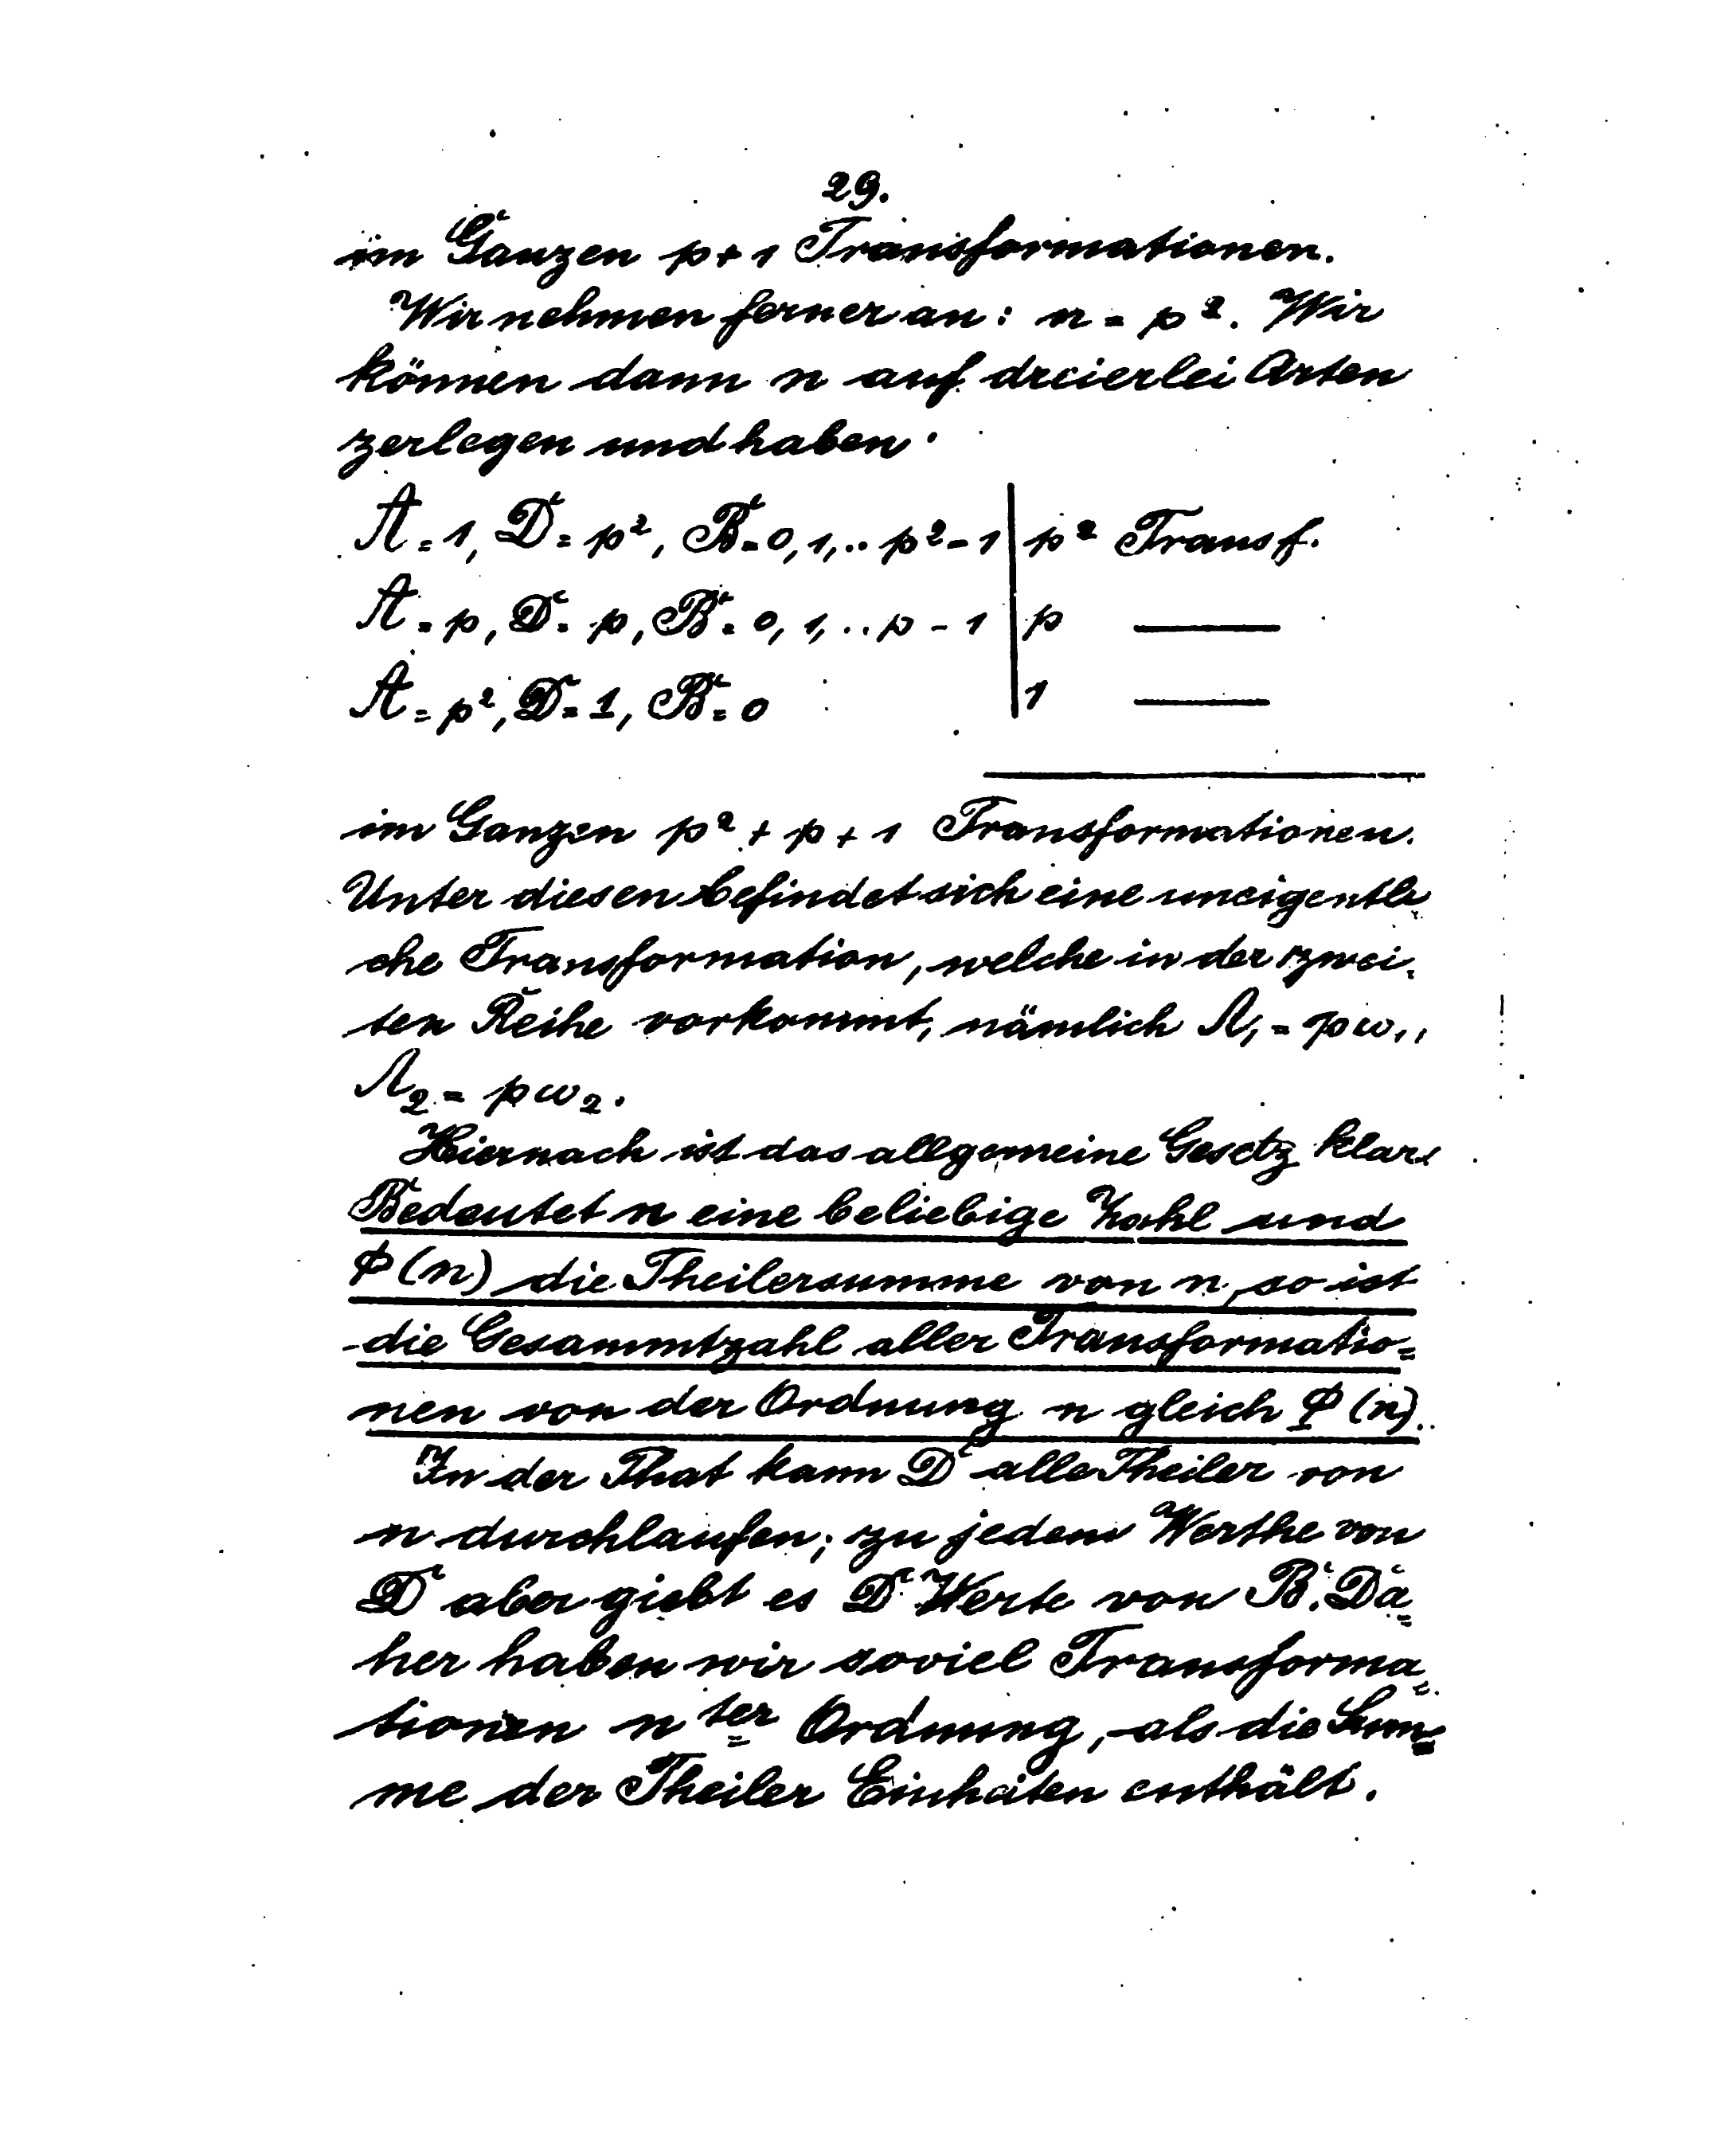 29.
im Ganzen p + 1 Transformationen.
Wir nehmen ferner an: n = p². Wir
können dann n auf dreierlei Arten
zerlegen und haben:
A = 1, D = p², B = 0, 1, .. p² - 1 | p² Transf.
A = p, D = p, B = 0, 1, .. p - 1 | p ——
A = p², D = 1, B = 0 | 1 ——
im Ganzen p² + p + 1 Transformationen.
Unter diesen befindet sich eine uneigentli
che Transformation, welche in der zwei-
ten Reihe vorkommt, nämlich Λ₁ = pω₁,
Λ₂ = pω₂.
Hiernach ist das allgemeine Gesetz klar:
Bedeutet n eine beliebige Zahl und
Φ(n) die Theilersumme von n, so ist
die Gesammtzahl aller Transformatio=
nen von der Ordnung n gleich Φ(n).
In der That kann D alle Theiler von
n durchlaufen; zu jedem Werthe von
D aber giebt es D Werte von B. Da=
her haben wir soviel Transforma=
tionen n ter Ordnung, als die Sum=
me der Theiler Einheiten enthält.